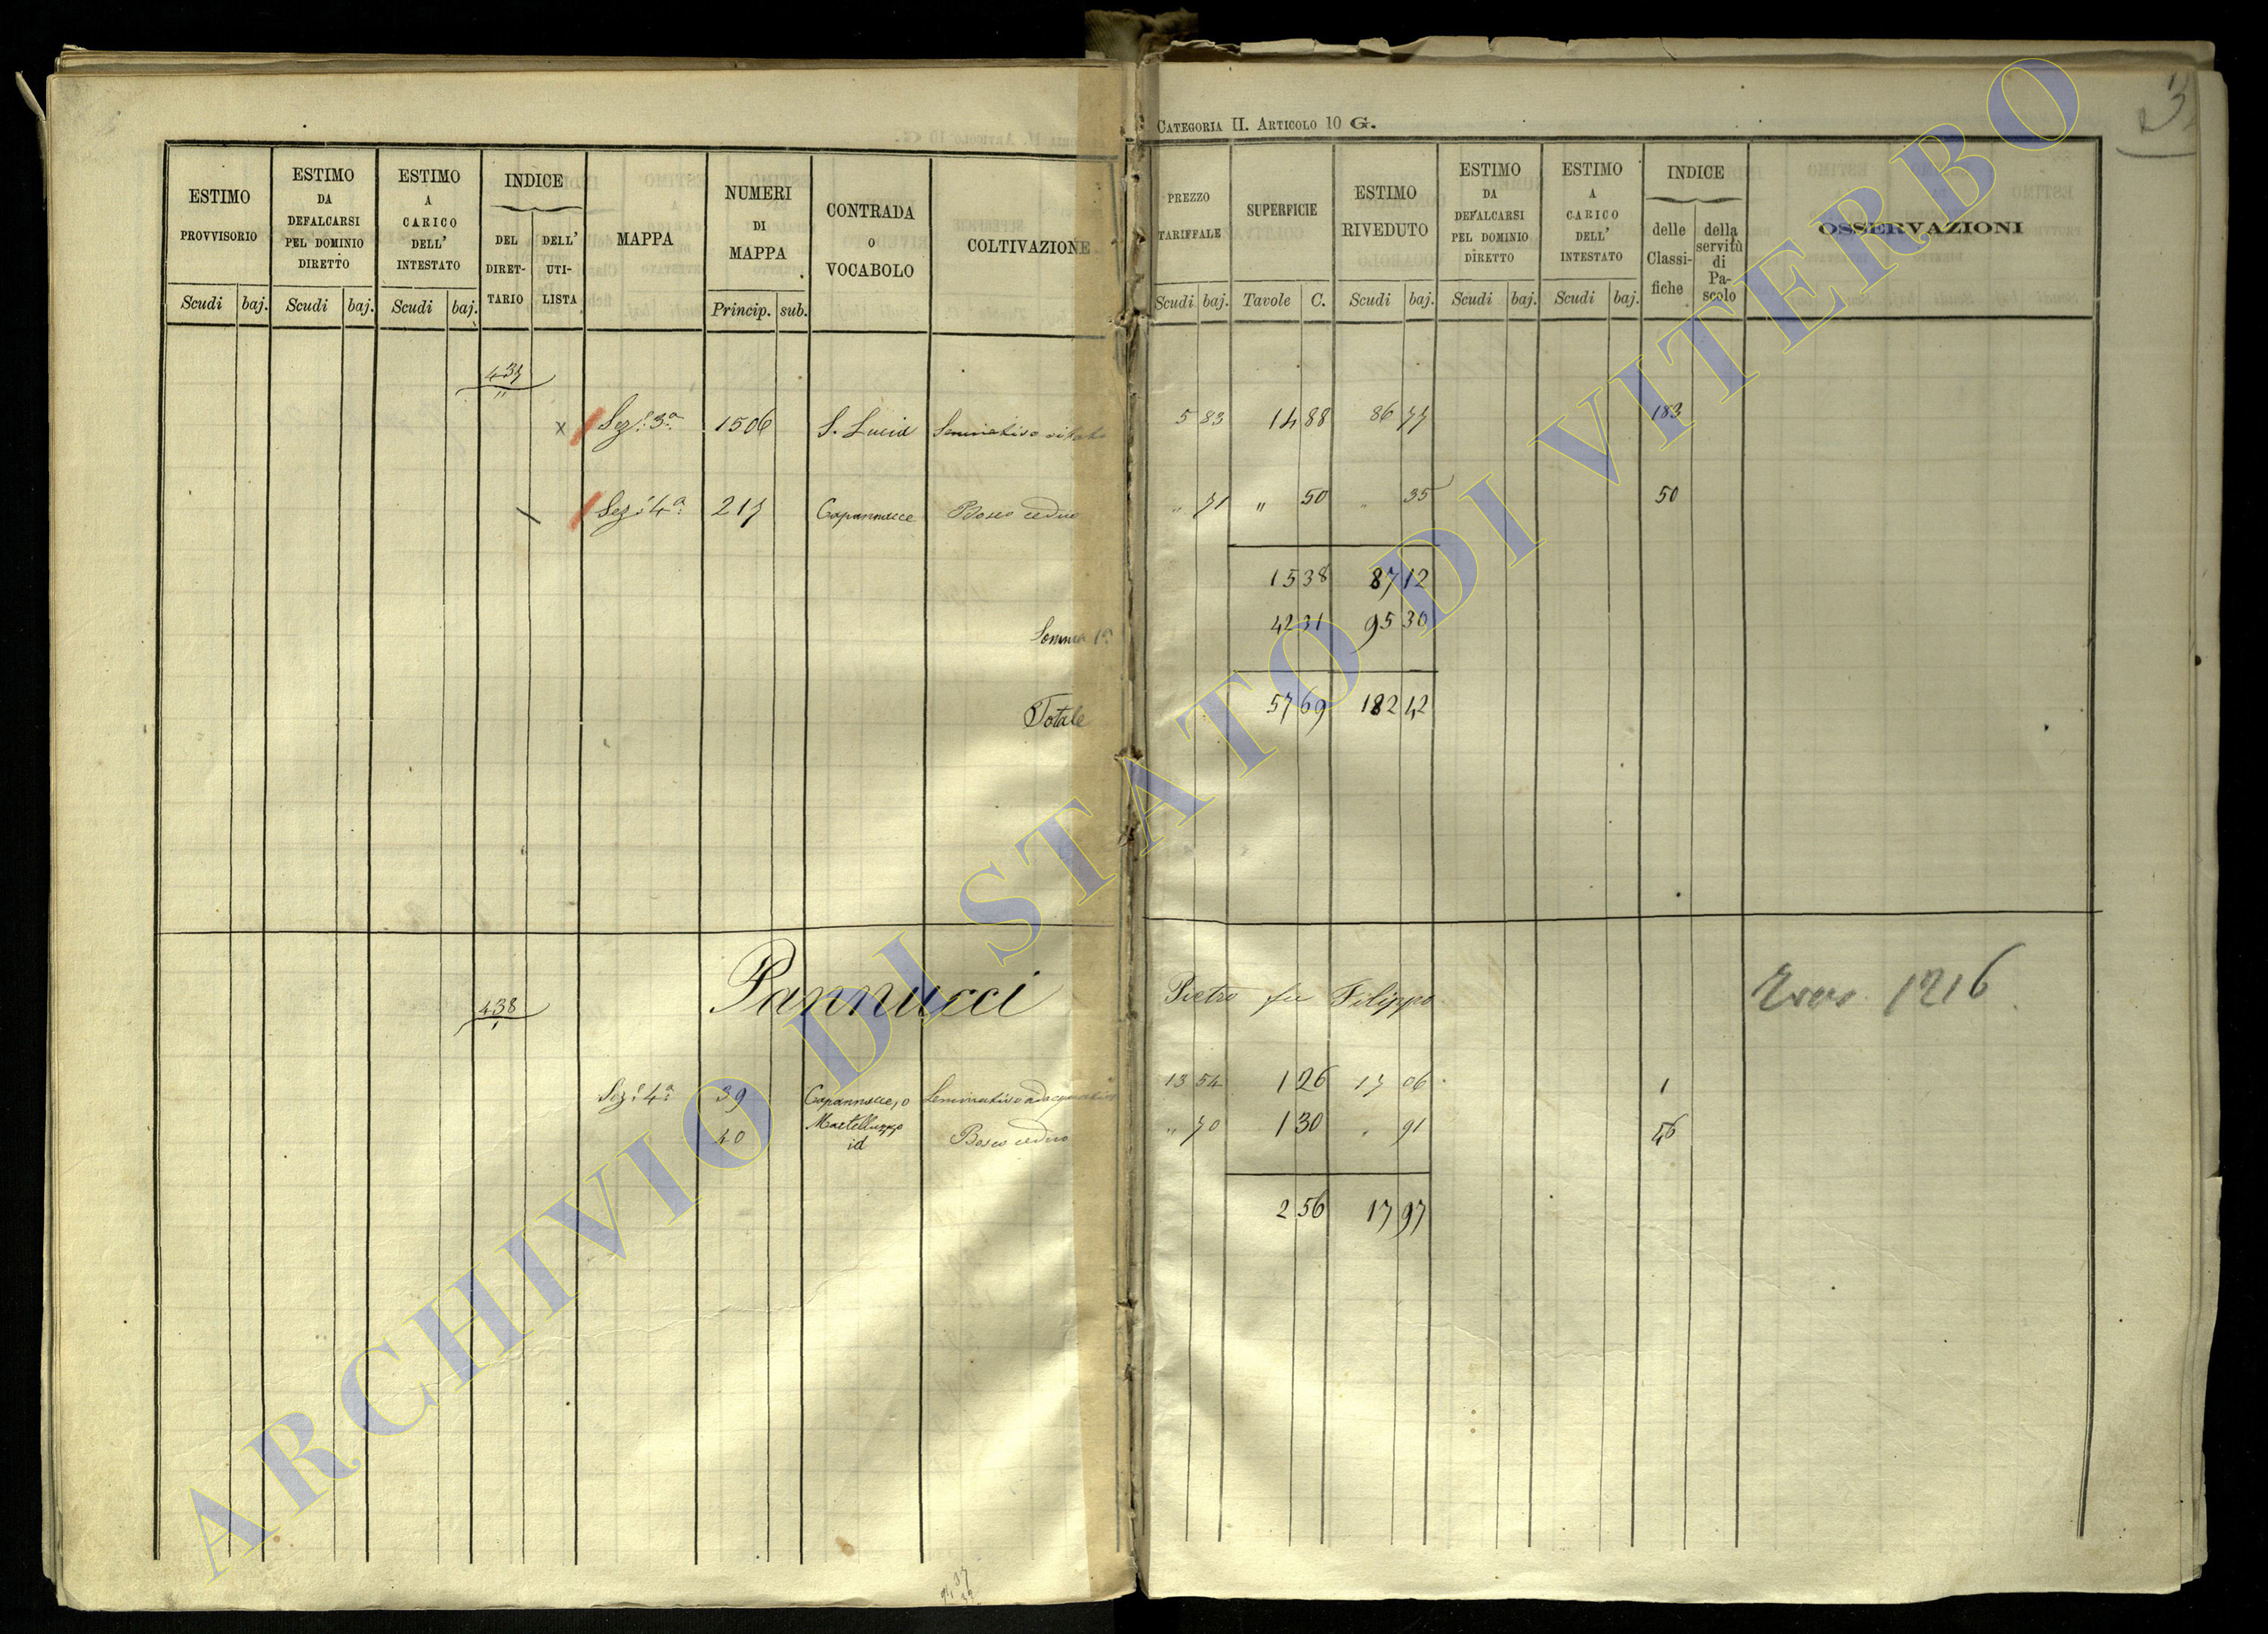 CATEGORIA II. ARTICOLO 10 G.
3
ESTIMO PROVVISORIO
ESTIMO DA DEFALCARSI PEL DOMINIO DIRETTO
ESTIMO A CARICO DELL' INTESTATO
INDICE
DEL DIRET-TARIO
DELL' UTI-LISTA
MAPPA
NUMERI DI MAPPA
CONTRADA O VOCABOLO
COLTIVAZIONE
PREZZO TARIFFALE
SUPERFICIE
ESTIMO RIVEDUTO
ESTIMO DA DEFALCARSI PEL DOMINIO DIRETTO
ESTIMO A CARICO DELL' INTESTATO
INDICE
delle Classi-fiche
della servitù di Pa-scolo
OSSERVAZIONI
Scudi baj. Scudi baj. Scudi baj. Princip. sub. Scudi baj. Tavole C. Scudi baj. Scudi baj. Scudi baj.
437
x Sez: 3a 1506 S. Lucia Seminativo vitato 5 83 14 88 86 77 183
Sez: 4a 217 Capannacce Bosco ceduo " 71 " 50 " 35 50
15 38 87 12
Somma 1a 42 31 95 30
Totale 57 69 182 42
438 Pannucci Pietro fu Filippo 1216
Sez: 4a 39 Capannacce, o Martelluzzo Seminativo adacquativo 13 54 1 26 17 06 1
40 id Bosco ceduo " 70 1 30 " 91 46
2 56 17 97
ARCHIVIO DI STATO DI VITERBO